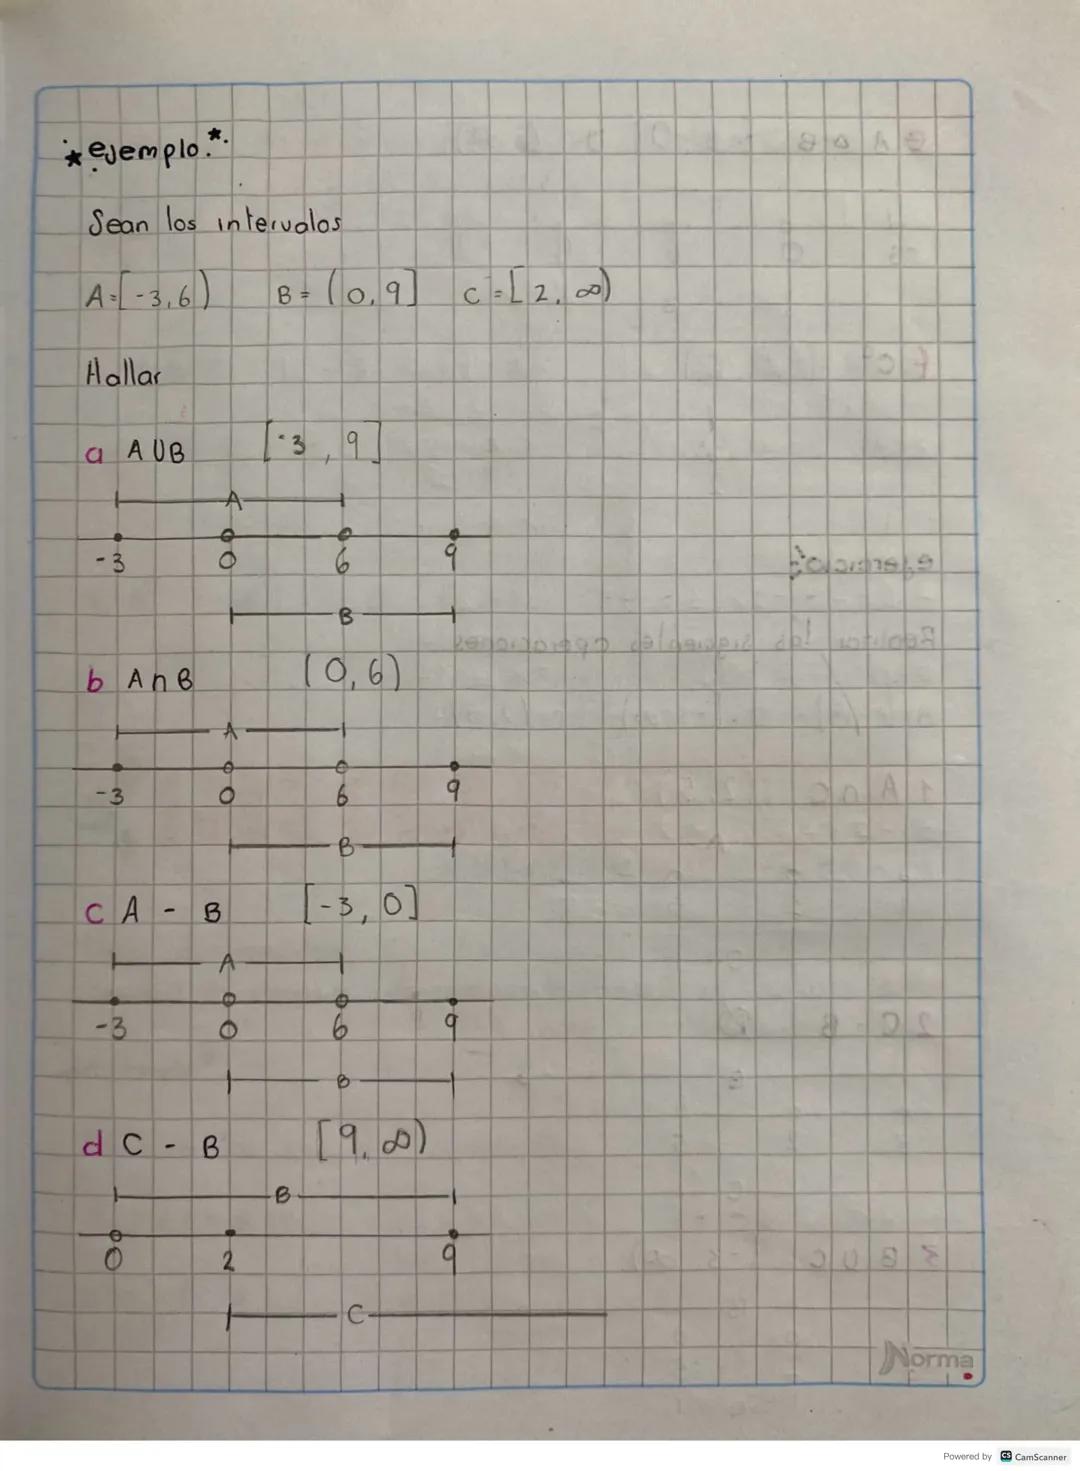 * ejemplo.*
Sean los intervalos
A=[-3,6) B=(0,9] C=[2,∞)
Hallar
a A∪B [-3, 9]
A
-3 0 6 9
B
b A∩B (0,6)
A
-3 0 6 9
B
c A - B [-3, 0]
A
-3 0 6 9
B
d C - B [9, ∞)
B
0 2 9
C
Norma
Powered by CS CamScanner